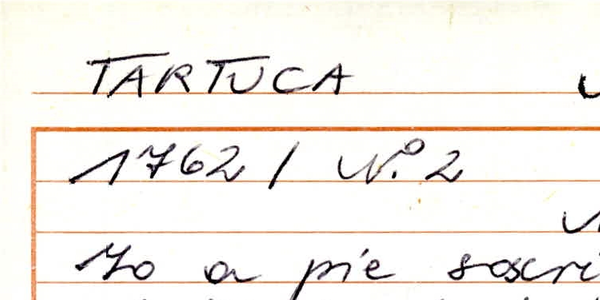 TARTUCA
1762 / N.º 2
Io a pie soscri